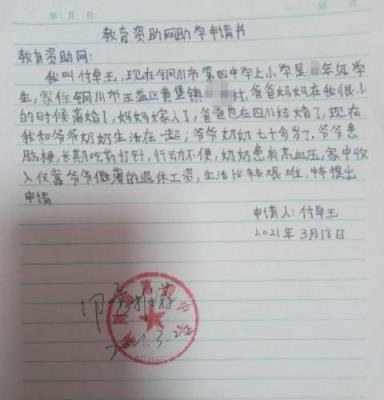 年 月 日
教育资助网助学申请书
教育资助网:
我叫付卓玉,现在铜川市第四中学上小学是 年级学
生,家住铜川市王益区黄堡镇 村,爸爸妈妈在我很小
的时候离婚了,妈妈嫁人了,爸爸也在四川结婚了,现在
我和爷爷奶奶生活在一起;爷爷奶奶七十多岁了,爷爷患
脑梗,长期吃药打针,行动不便,奶奶患有高血压,家中收
入仅靠爷爷微薄的退休工资,生活比较艰难,特提出
申请
申请人:付卓玉
2021年3月18日
2021.3.22